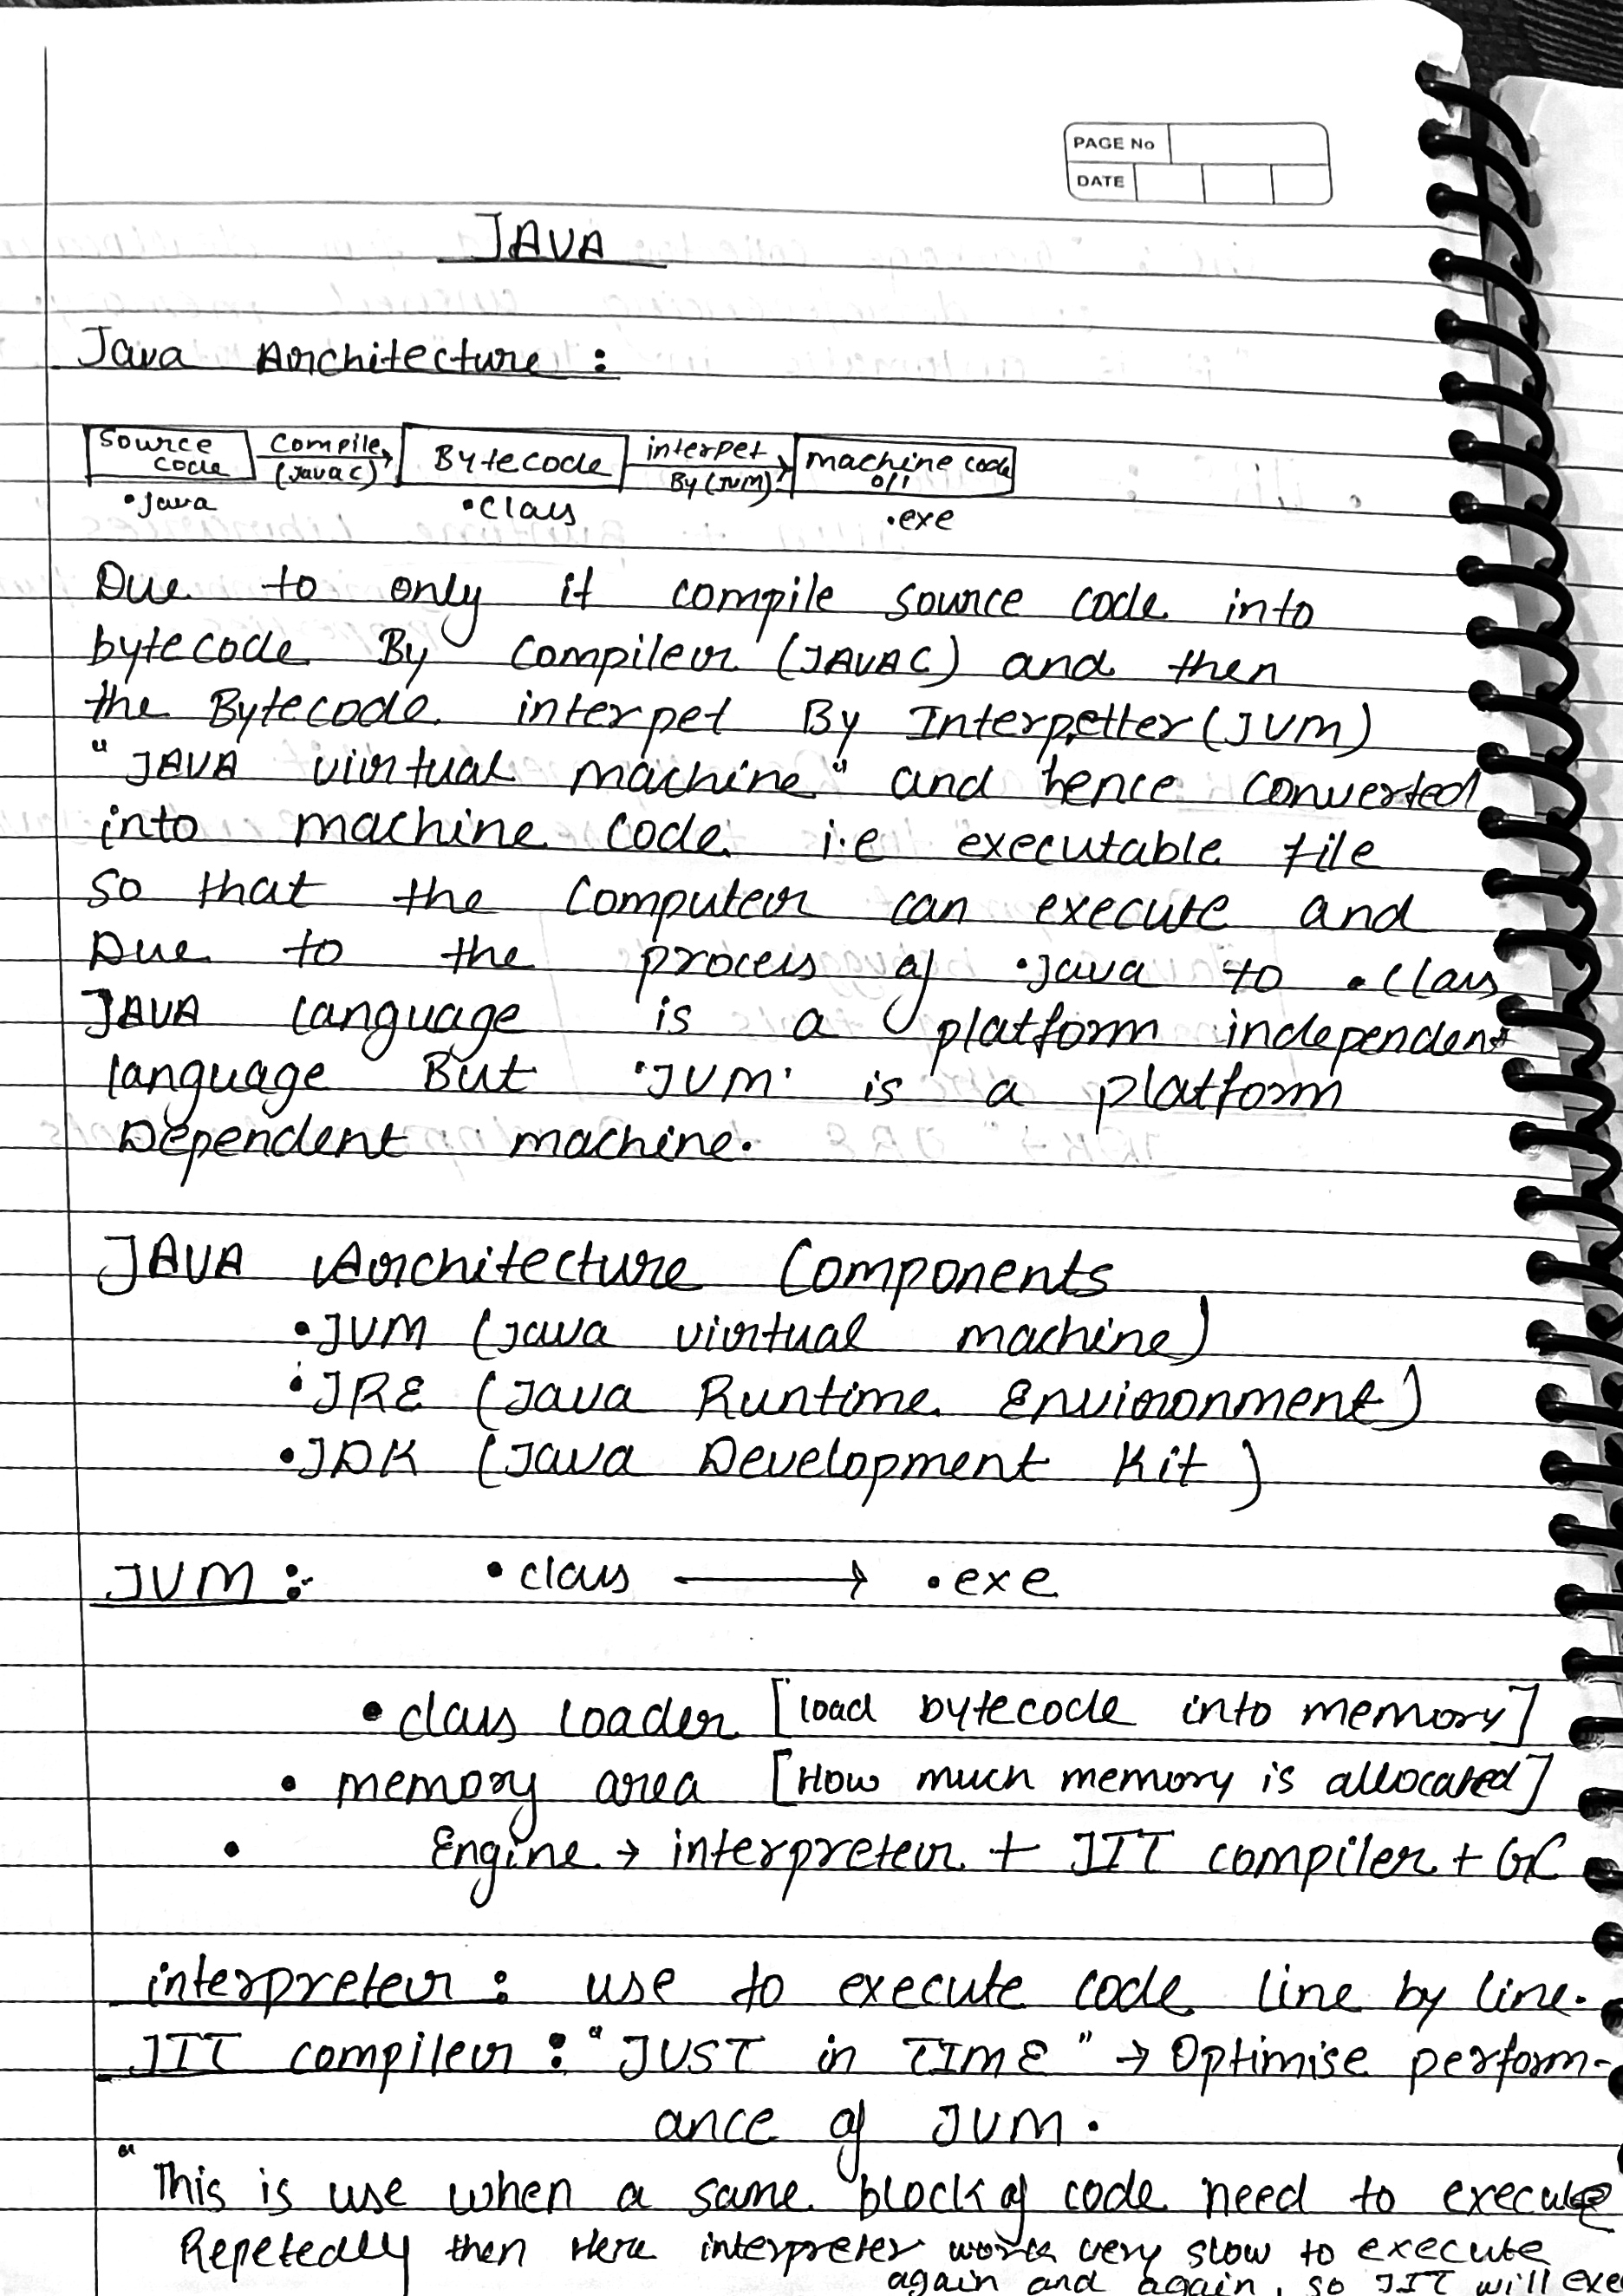 PAGE No
DATE
JAVA
Java Architecture :
Source code compile (Javac) Bytecode interpet By (JVM) machine code 0/1
.java .class .exe
Due to only it compile source code into
bytecode By Compiler (JAVAC) and then
the Bytecode interpet By Interpetter (JVM)
"JAVA virtual machine" and hence converted
into machine code i.e executable file
so that the computer can execute and
Due to the process of .java to .class
JAVA language is a platform independent
language But 'JVM' is a platform
Dependent machine.
JAVA Architecture Components
•JVM (java virtual machine)
•JRE (Java Runtime Environment)
•JDK (Java Development Kit)
JVM :- •class → •exe
• class loader [load bytecode into memory]
• memory area [How much memory is allocated]
• Engine → interpreter + JIT compiler + GC
interpreter : use to execute code line by line.
JIT compiler : "JUST in TIME" → Optimise perform-
ance of JVM.
"This is use when a same block of code need to execute
Repetedly then Here interpreter works very slow to execute
again and again, so JIT will exe